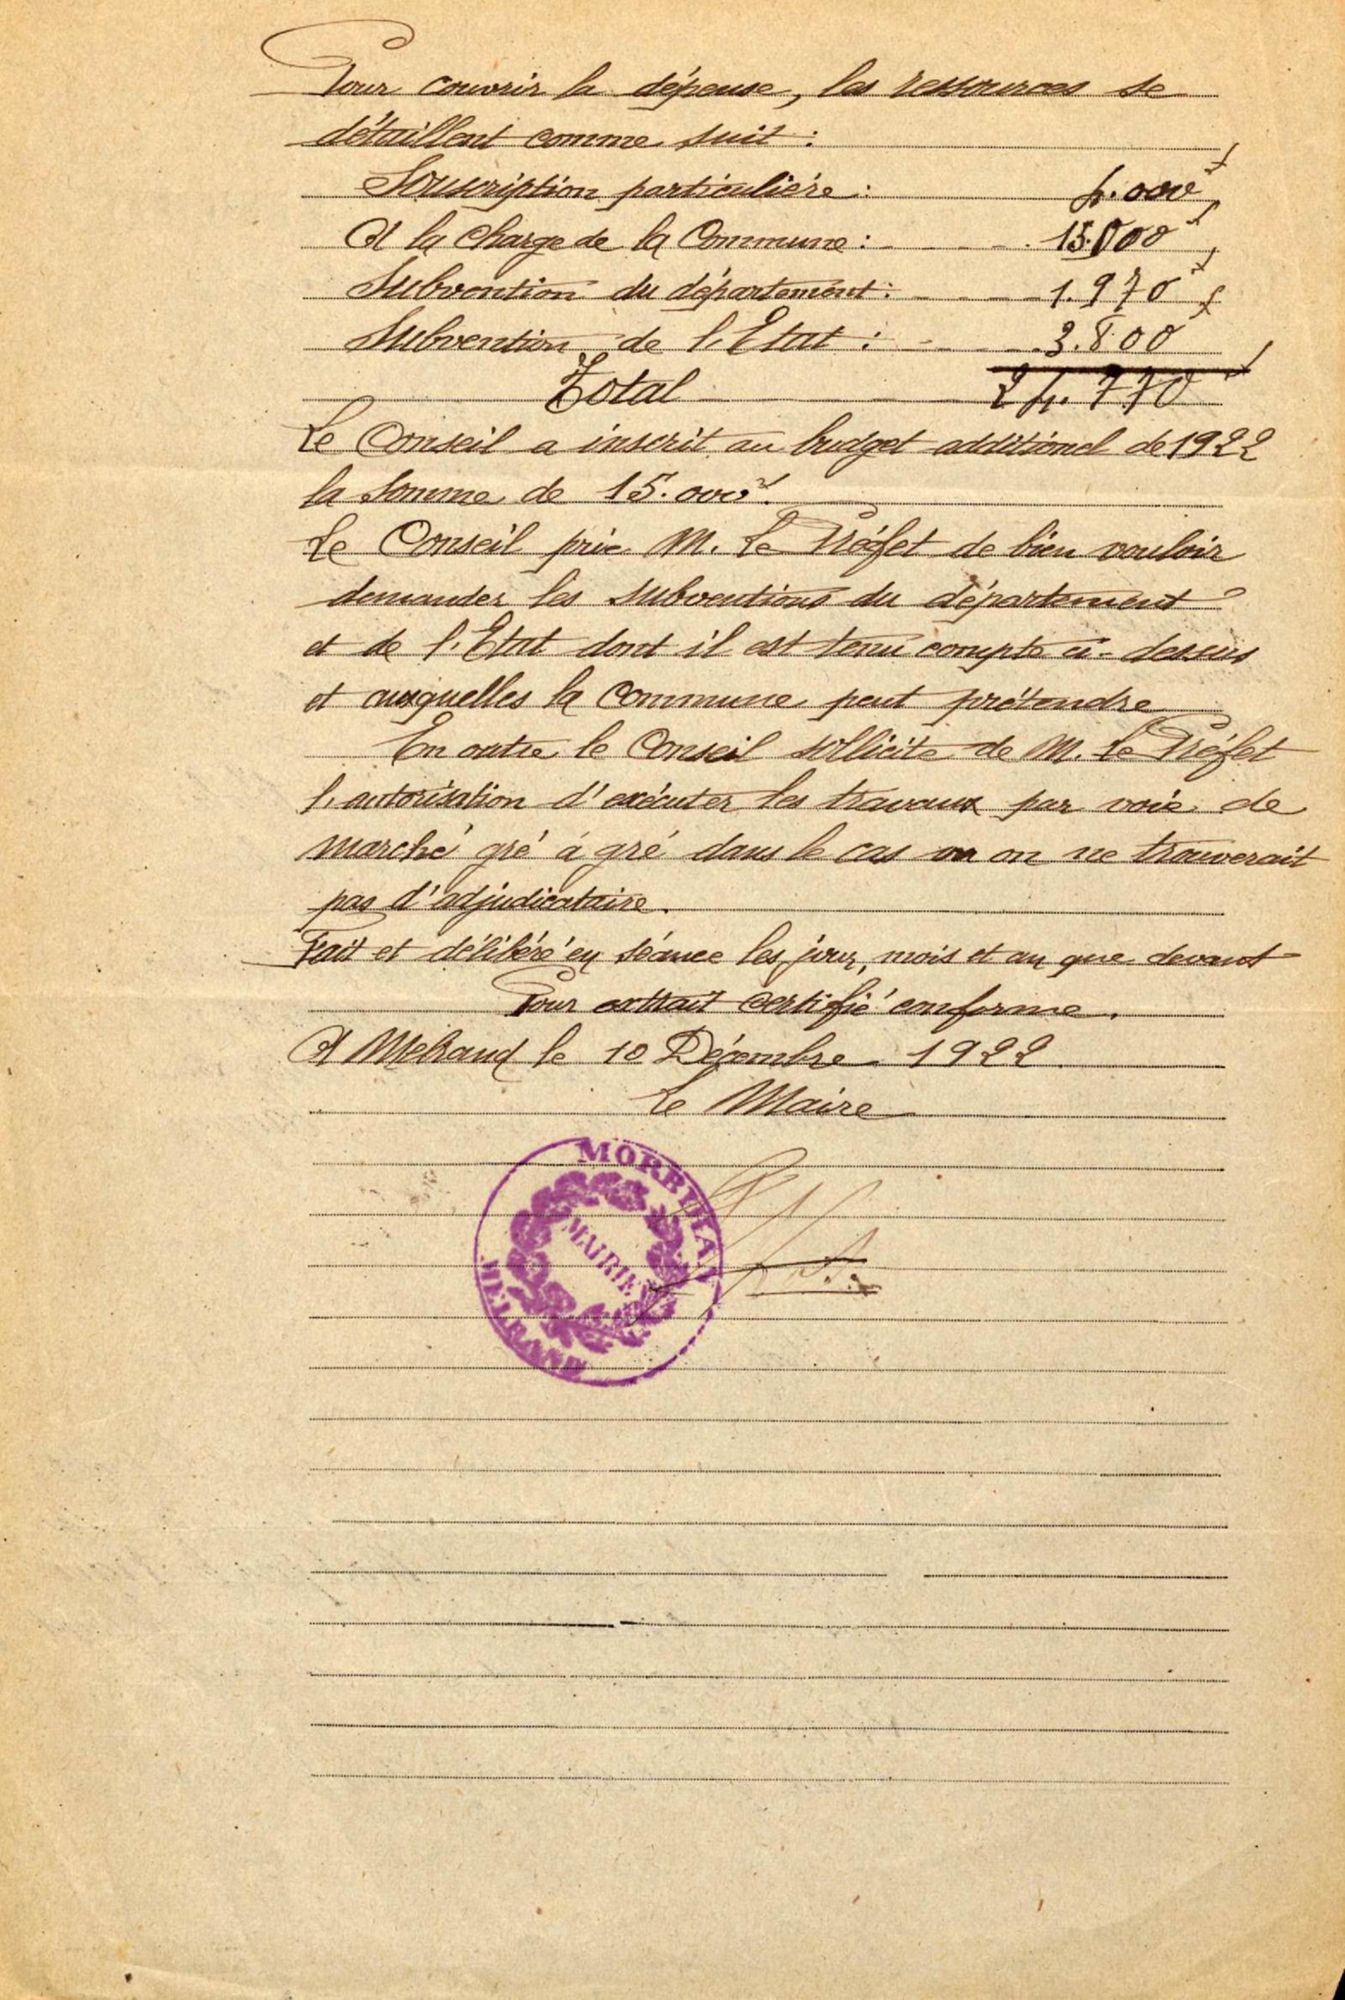 Pour couvrir la dépense, les ressources se
détaillent comme suit :
Souscription particulière : 4.000f
A la charge de la Commune : 15.000f
Subvention du département : 1.970f
Subvention de l'Etat : 3.800f
Total 24.770f
Le Conseil a inscrit au budget additionel de 1922
la somme de 15.000f.
Le Conseil prie M. Le Préfet de bien vouloir
demander les subventions du département
et de l'Etat dont il est tenu compte ci-dessus
et auxquelles la commune peut prétendre
En outre le Conseil sollicite de M. Le Préfet
l'autorisation d'exécuter les travaux par voie de
marché gré à gré dans le cas où on ne trouverait
pas d'adjudicataire.
Fait et délibéré en séance les jour, mois et an que devant
Pour extrait certifié conforme.
A Melrand le 10 Décembre 1922
Le Maire
MORBIHAN
MAIRIE
MELRAND